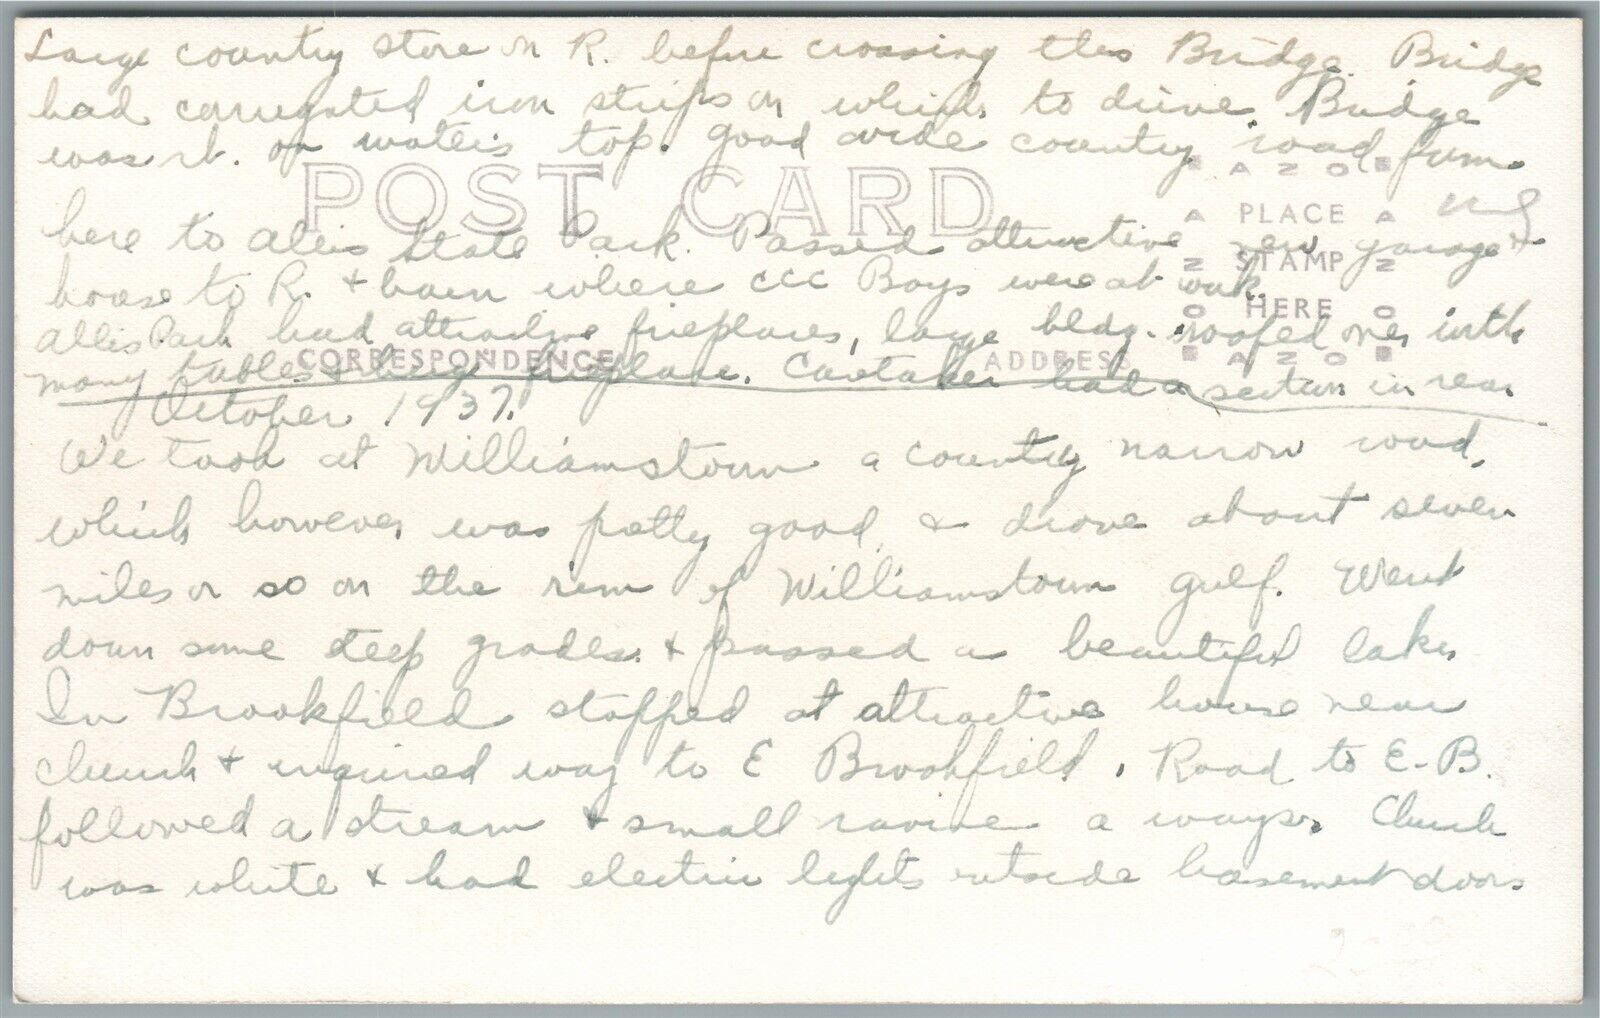 Large country store on R. before crossing this Bridge. Bridge
had corrugated iron strips on which to drive. Bridge
was rt. on water's top. good wide country road from
POST CARD
AZO
PLACE
STAMP
HERE
AZO
here to Allis State Park. Passed attractive new garage &
house to R. & barn where CCC Boys were at work.
Allis Park had attractive fireplaces, large bldg. roofed over with
CORRESPONDENCE
ADDRESS
many tables & large fireplace. Caretaker had a section in rear
October 1937.
We took at Williamstown a country narrow road,
which however was pretty good & drove about seven
miles or so on the rim of Williamstown gulf. Went
down some steep grades & passed a beautiful lake,
In Brookfield stopped at attractive house near
church & inquired way to E Brookfield. Road to E-B.
followed a stream & small ravine a ways. Church
was white & had electric lights outside basement doors